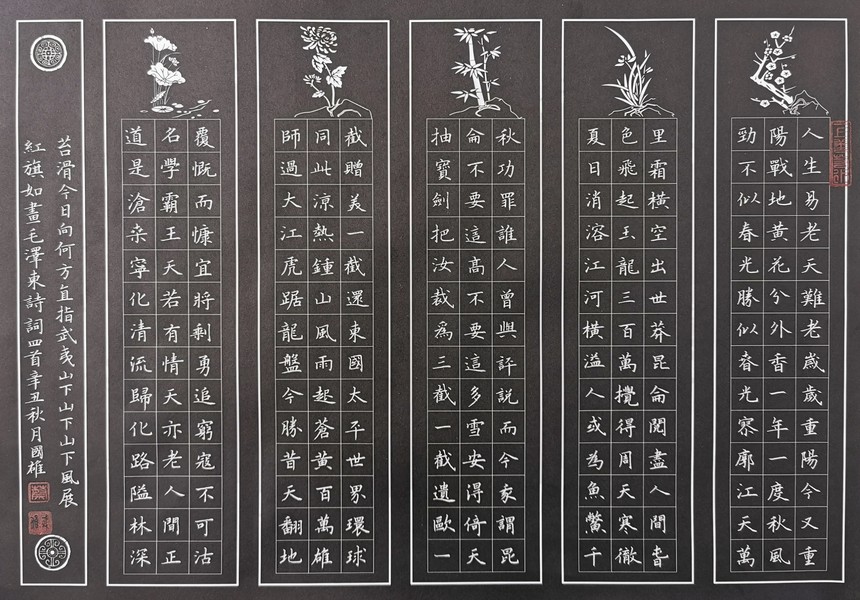 人生易老天難老歲歲重陽今又重
陽戰地黃花分外香一年一度秋風
勁不似春光勝似春光寥廓江天萬
里霜橫空出世莽昆侖閱盡人間春
色飛起玉龍三百萬攪得周天寒徹
夏日消溶江河橫溢人或為魚鱉千
秋功罪誰人曾與評說而今家謂昆
侖不要這高不要這多雪安得倚天
抽寶劍把汝裁為三截一截遺歐一
截贈美一截還東國太平世界環球
同此涼熱鍾山風雨起蒼黃百萬雄
師過大江虎踞龍盤今勝昔天翻地
覆慨而慷宜將剩勇追窮寇不可沽
名學霸王天若有情天亦老人間正
道是滄桑寧化清流歸化路隘林深
苔滑今日向何方直指武夷山下山下山下風展
紅旗如畫毛澤東詩詞四首辛丑秋月國雄